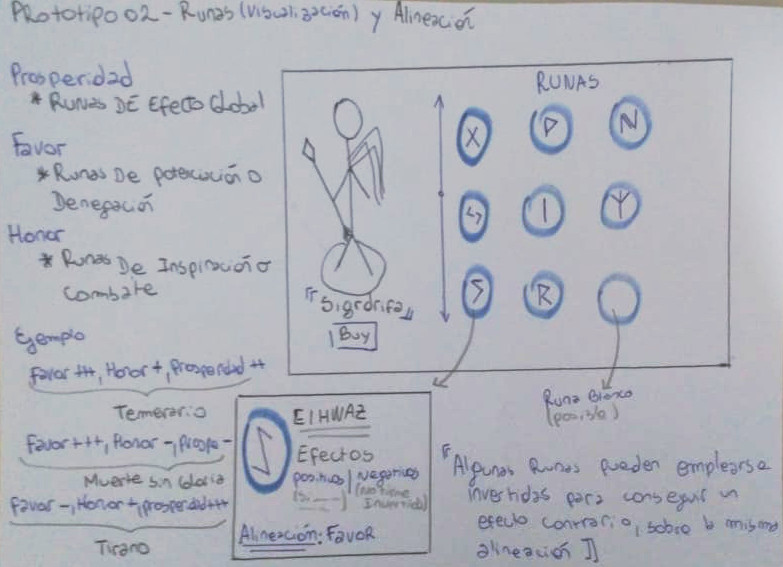 Prototipo 02 - Runas (Visualización) y Alineación
Prosperidad
* Runas DE Efecto Global
Favor
* Runas De potenciación o
Denegación
Honor
* Runas De Inspiración o
Combate
Ejemplo
Favor +++, Honor +, Prosperidad ++
Temerario
Favor +++, Honor -, Prospe -
Muerte sin Gloria
Favor -, Honor +, prosperidad +++
Tirano
RUNAS
X P N
I Y
S R
『Sigrdrifa』
Buy
EIHWAZ
Efectos
positivos | Negativos
(No tiene
Invertida)
Alineación: FAVOR
Runa Blanca
(posible)
『Algunas Runas pueden emplearse
invertidas para conseguir un
efecto contrario, sobre la misma
alineación 』